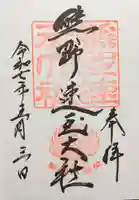 奉拝
熊野速玉大社
令和七年三月三日